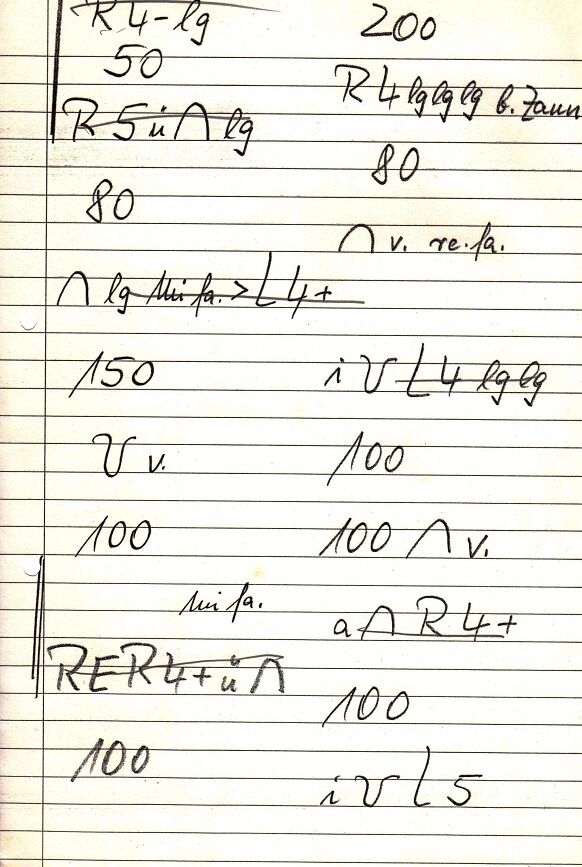 R 4 - lg
50
R 5 ü ∩ lg
80
∩ lg Mi fa. > L 4 +
150
V v.
100
Mi fa.
R E R 4 + ü ∩
100
200
R 4 lg lg lg b. Zaun
80
∩ v. re. fa.
i V L 4 lg lg
100
100 ∩ v.
a ∩ R 4 +
100
i V L 5